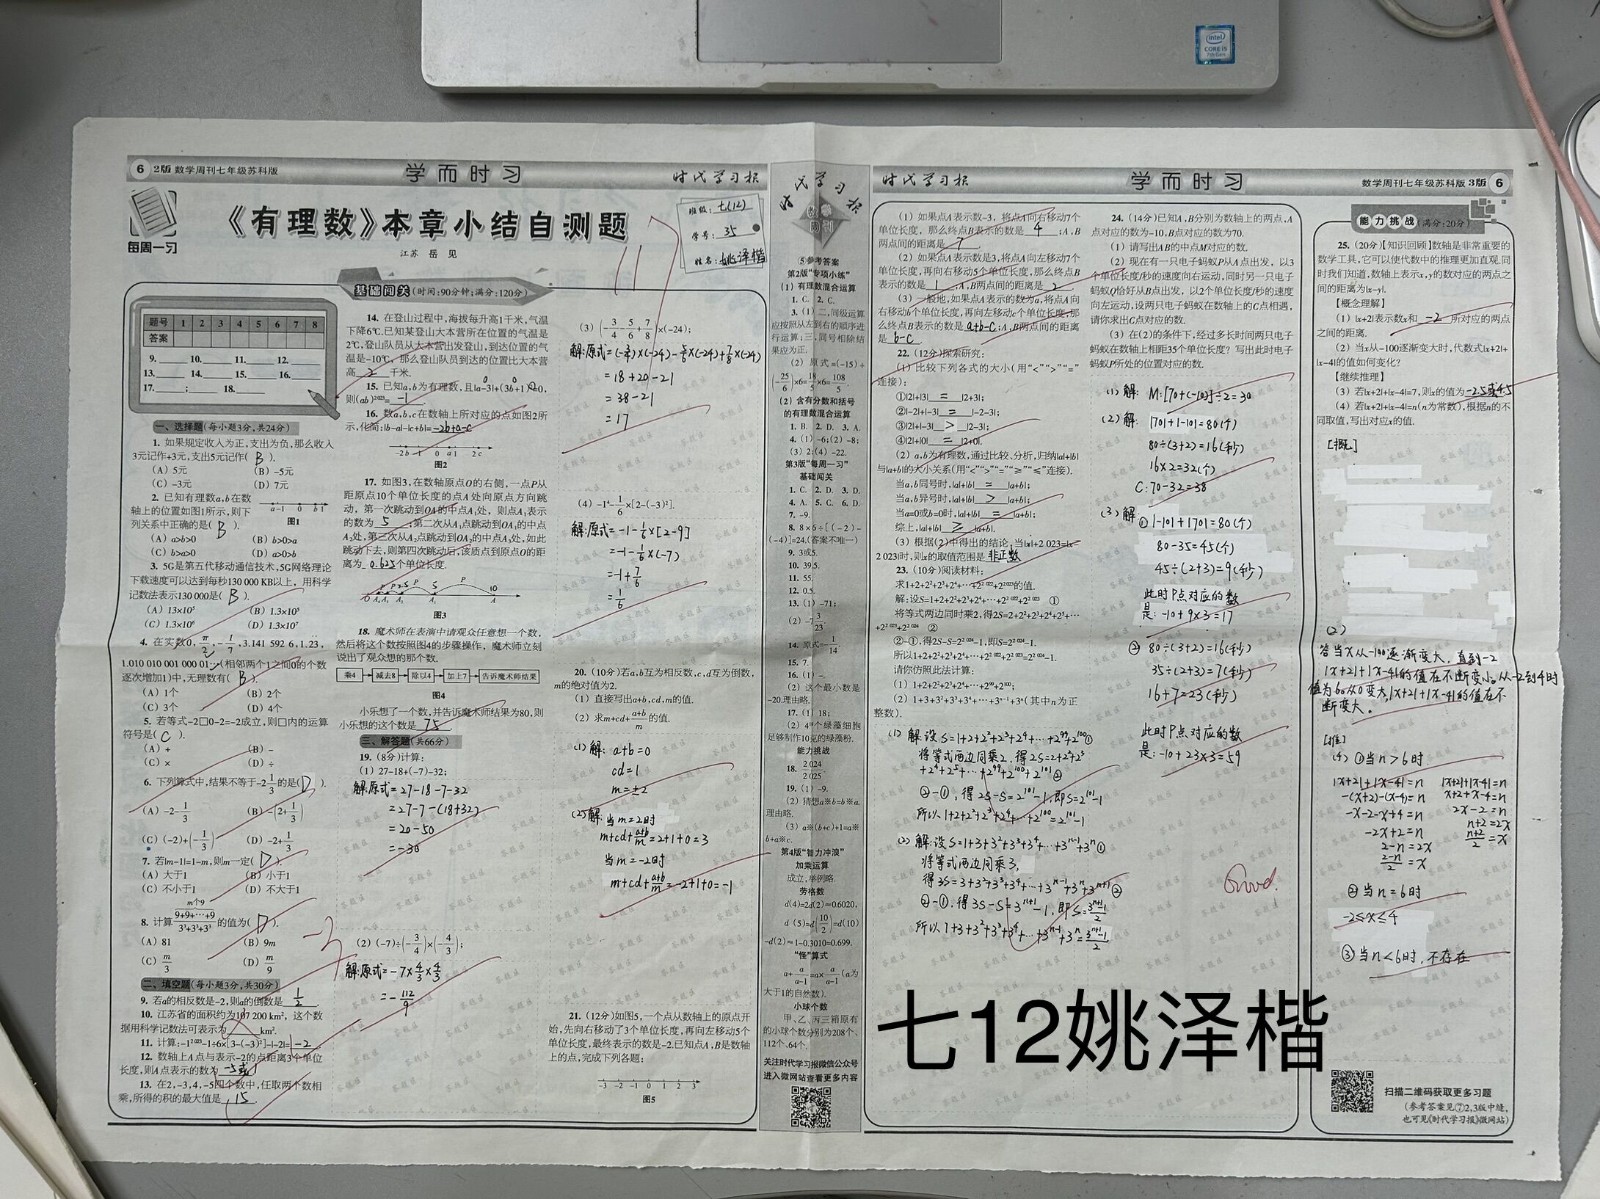 6 2版 数学周刊七年级苏科版
学而时习
时代学习报
每周一习
《有理数》本章小结自测题
江苏 岳 见
班级：七(12)
学号：35
姓名：姚泽楷
基础闯关(时间:90分钟;满分:120分)
题号 1 2 3 4 5 6 7 8
答案
9. 10. 11. 12.
13. 14. 15. 16.
17. ; 18.
一、选择题(每小题3分,共24分)
1. 如果规定收入为正,支出为负,那么收入
3元记作+3元,支出5元记作( B ).
(A) 5元 (B) -5元
(C) -3元 (D) 7元
2. 已知有理数a,b在数
轴上的位置如图1所示,则下
列关系中正确的是( B ).
a -1 0 b 1
图1
(A) a>b>0 (B) b>0>a
(C) b>a>0 (D) a>0>b
3. 5G是第五代移动通信技术,5G网络理论
下载速度可以达到每秒130 000 KB以上,用科学
记数法表示130 000是( B ).
(A) 13×10⁴ (B) 1.3×10⁵
(C) 1.3×10⁶ (D) 1.3×10⁷
4. 在实数0, π/2, -1/7, 3.141 592 6, 1.23,
1.010 010 001 000 01…(相邻两个1之间0的个数
逐次增加1)中,无理数有( B ).
(A) 1个 (B) 2个
(C) 3个 (D) 4个
5. 若等式-2□0-2=-2成立,则□内的运算
符号是( C ).
(A) + (B) -
(C) × (D) ÷
6. 下列算式中,结果不等于-2 1/3的是( D ).
(A) -2-1/3 (B) -(2+1/3)
(C) (-2)+(-1/3) (D) -2+1/3
7. 若|m-1|=1-m,则m一定( D ).
(A) 大于1 (B) 小于1
(C) 不小于1 (D) 不大于1
8. 计算 m个9 9+9+…+9 / 3³+3³+3³ 的值为( D ).
(A) 81 (B) 9m
(C) m/3 (D) m/9
二、填空题(每小题3分,共30分)
9. 若a的相反数是-2,则a的倒数是 1/2
10. 江苏省的面积约为107 200 km²,这个数
据用科学记数法可表示为 km².
11. 计算:-1²⁰²³-1÷6×[3-(-3)²]-|-2|= -2
12. 数轴上A点与表示-2的点距离3个单位
长度,则A点表示的数为 -5或1
13. 在2,-3,4,-5四个数中,任取两个数相
乘,所得的积的最大值是 15
14. 在登山过程中,海拔每升高1千米,气温
下降6℃.已知某登山大本营所在位置的气温是
2℃,登山队员从大本营出发登山,到达位置的气
温是-10℃,那么登山队员到达的位置比大本营
高 2 千米.
15. 已知a,b为有理数,且|a-3|+(3b+1)²=0,
则(ab)²⁰²³= -1
16. 数a,b,c在数轴上所对应的点如图2所
示,化简:|b-a|-|c+b|= -2b+a-c
-2b -1 0 a 1 2 c
图2
17. 如图3,在数轴原点O的右侧,一点P从
距原点10个单位长度的点A处向原点方向跳
动,第一次跳动到OA的中点A₁处,则点A₁表示
的数为 5 ;第二次从A₁点跳动到OA₁的中点
A₂处,第三次从A₂点跳动到OA₂的中点A₃处,如此
跳动下去,则第四次跳动后,该质点到原点O的距
离为 0.625 个单位长度.
图3
18. 魔术师在表演中请观众任意想一个数,
然后将这个数按照图4的步骤操作,魔术师立刻
说出了观众想的那个数.
乘4 减去8 除以4 加上7 告诉魔术师结果
图4
小乐想了一个数,并告诉魔术师结果为80,则
小乐想的这个数是 75
三、解答题(共66分)
19. (8分)计算:
(1) 27-18+(-7)-32;
解:原式=27-18-7-32
=27-7-(18+32)
=20-50
=-30
-3
(2) (-7)÷(-3/4)×(-4/3);
解:原式=-7×4/3×4/3
=-112/9
117
(3) (-3/4-5/6+7/8)×(-24);
解:原式=(-3/4)×(-24)-5/6×(-24)+7/8×(-24)
=18+20-21
=38-21
=17
(4) -1⁴-1/6×[2-(-3)²].
解:原式=-1-1/6×[2-9]
=-1-1/6×(-7)
=-1+7/6
=1/6
20. (10分)若a,b互为相反数,c,d互为倒数,
m的绝对值为2.
(1) 直接写出a+b,cd,m的值.
(2) 求m+cd+(a+b)/m的值.
(1)解: a+b=0
cd=1
m=±2
(2)解:
当m=2时
m+cd+(a+b)/m=2+1+0=3
当m=-2时
m+cd+(a+b)/m=-2+1+0=-1
21. (12分)如图5,一个点从数轴上的原点开
始,先向右移动了3个单位长度,再向左移动5个
单位长度,最终表示的数是-2.已知点A,B是数轴
上的点,完成下列各题:
-3 -2 -1 0 1 2 3
图5
时代学习报
数学
周刊
5参考答案
第2版“专项小练”
(1) 有理数混合运算
1. C. 2. C.
3. (1) 二,同级运算
应按照从左到右的顺序进
行运算;三,同号相除结
果应为正.
(2) 原式=(-15)÷
(-25/6)×6=18/5×6=108/5.
(2) 含有分数和括号
的有理数混合运算
1. B. 2. D. 3. A.
4. (1) -6;(2) -8;
3. (2);(4) -22.
第3版“每周一习”
基础闯关
1. C. 2. D. 3. D.
4. A. 5. C. 6. D.
7. -9.
8. 8×6÷[(-2)-
(-4)]=24.(答案不唯一)
9. 3或5.
10. 39.5.
11. 55.
12. 0.5.
13. (1) -71;
14. 原式=-1/14
15. 7.
16. (1) -.
(2) 这个最小数是
-20.理由略.
17. (1) 18;
(2) 4个绿藻细胞
足够制作10克的绿藻粉.
能力挑战
18. 2 024/2 025
19. (1) -9.
(2) 猜想a※b=b※a.
理由略.
(3) a※(b+c)+1=a※
b+a※c.
第4版“智力冲浪”
加乘运算
成立,举例略.
劳格数
d(4)=2d(2)≈0.6020,
d(5)=d(10/2)=d(10)
-d(2)≈1-0.3010=0.699.
“怪”算式
a+a/(a-1)=a×a/(a-1)(a为
大于1的自然数).
小球个数
甲、乙、丙三箱原有
的小球个数分别为208个、
112个、64个.
关注时代学习报微信公众号
进入微网站查看更多内容
时代学习报
学而时习
数学周刊七年级苏科版 3版 6
(1) 如果点A表示数-3,将点A向右移动7个
单位长度,那么终点B表示的数是 4 ;A,B
两点间的距离是 7
(2) 如果点A表示数3,将点A向左移动7个
单位长度,再向右移动5个单位长度,那么终点B
表示的数是 1 ;A,B两点间的距离是 2
(3) 一般地,如果点A表示的数为a,将点A向
右移动b个单位长度,再向左移动c个单位长度,那
么终点B表示的数是 a+b-c ;A,B两点间的距离
是 b-c
22. (12分)探索研究:
(1) 比较下列各式的大小(用“<”“>”“=”
连接):
①|2|+|3| = |2+3|;
②|-2|+|-3| = |-2-3|;
③|2|+|-3| > |2-3|;
④|2|+|0| = |2+0|.
(2) a,b为有理数,通过比较、分析,归纳|a|+|b|
与|a+b|的大小关系(用“<”“>”“=”“≥”“≤”连接).
当a,b同号时,|a|+|b| = |a+b|;
当a,b异号时,|a|+|b| > |a+b|;
当a=0或b=0时,|a|+|b| = |a+b|;
综上,|a|+|b| ≥ |a+b|.
(3) 根据(2)中得出的结论,当|x|+2 023=|x-
2 023|时,则x的取值范围是 非正数
23. (10分)阅读材料:
求1+2+2²+2³+2⁴+…+2²⁰²²+2²⁰²³的值.
解:设S=1+2+2²+2³+2⁴+…+2²⁰²²+2²⁰²³ ①
将等式两边同时乘2,得2S=2+2²+2³+2⁴+…
+2²⁰²³+2²⁰²⁴ ②
②-①,得2S-S=2²⁰²⁴-1,即S=2²⁰²⁴-1.
所以1+2+2²+2³+2⁴+…+2²⁰²³=2²⁰²⁴-1.
请你仿照此法计算:
(1) 1+2+2²+2³+2⁴+…+2⁹⁹+2¹⁰⁰;
(2) 1+3+3²+3³+3⁴+…+3ⁿ⁻¹+3ⁿ(其中n为正
整数).
(1) 解 设S=1+2+2²+2³+2⁴+…+2⁹⁹+2¹⁰⁰①
将等式两边同乘2,得2S=2+2²+2³
+2⁴+2⁵+…+2⁹⁹+2¹⁰⁰+2¹⁰¹②
②-①,得2S-S=2¹⁰¹-1,即S=2¹⁰¹-1
所以1+2+2²+2³+2⁴+…+2¹⁰⁰=2¹⁰¹-1
(2) 解:设S=1+3+3²+3³+3⁴+…+3ⁿ⁻¹+3ⁿ①
将等式两边同乘3,
得3S=3+3²+3³+3⁴+…+3ⁿ⁻¹+3ⁿ+3ⁿ⁺¹②
②-①,得3S-S=3ⁿ⁺¹-1,即S=(3ⁿ⁺¹-1)/2
所以1+3+3²+3³+3⁴+…+3ⁿ⁻¹+3ⁿ=(3ⁿ⁺¹-1)/2
24. (14分)已知A,B分别为数轴上的两点,A
点对应的数为-10,B点对应的数为70.
(1) 请写出AB的中点M对应的数.
(2) 现在有一只电子蚂蚁P从A点出发,以3
个单位长度/秒的速度向右运动,同时另一只电子
蚂蚁Q恰好从B点出发,以2个单位长度/秒的速度
向左运动,设两只电子蚂蚁在数轴上的C点相遇,
请你求出C点对应的数.
(3) 在(2)的条件下,经过多长时间两只电子
蚂蚁在数轴上相距35个单位长度? 写出此时电子
蚂蚁P所处的位置对应的数.
(1) 解: M:[70+(-10)]÷2=30
(2)解: |70|+|-10|=80(个)
80÷(3+2)=16(秒)
16×2=32(个)
C:70-32=38
(3)解:①|-10|+|70|=80(个)
80-35=45(个)
45÷(2+3)=9(秒)
此时P点对应的数
是:-10+9×3=17
②80÷(3+2)=16(秒)
35÷(2+3)=7(秒)
16+7=23(秒)
此时P点对应的数
是:-10+23×3=59
Good!
能力挑战(满分:20分)
25. (20分)【知识回顾】数轴是非常重要的
数学工具,它可以使代数中的推理更加直观.同
时我们知道,数轴上表示x,y的数对应的两点之
间的距离为|x-y|.
【概念理解】
(1) |x+2|表示数x和 -2 所对应的两点
之间的距离.
(2) 当x从-100逐渐变大时,代数式|x+2|+
|x-4|的值如何变化?
【继续推理】
(3) 若|x+2|+|x-4|=7,则x的值为 -2.5或4.5
(4) 若|x+2|+|x-4|=n(n为常数),根据n的不
同取值,写出对应x的值.
[概]
(2)
答当x从-100逐渐变大,直到-2
|x+2|+|x-4|的值在不断变小。从-2到4时
值为6。从4变大,|x+2|+|x-4|的值在不
断变大。
[推]
(4) ①当n>6时
|x+2|+|x-4|=n |x+2|+|x-4|=n
-(x+2)-(x-4)=n x+2+x-4=n
-x-2-x+4=n 2x-2=n
-2x+2=n n+2=2x
2-n=2x (n+2)/2=x
(2-n)/2=x
②当n=6时
-2≤x≤4
③当n<6时,不存在
扫描二维码获取更多习题
(参考答案见⑦2,3版中缝,
也可见《时代学习报》微网站)
七12姚泽楷
intel
CORE i5